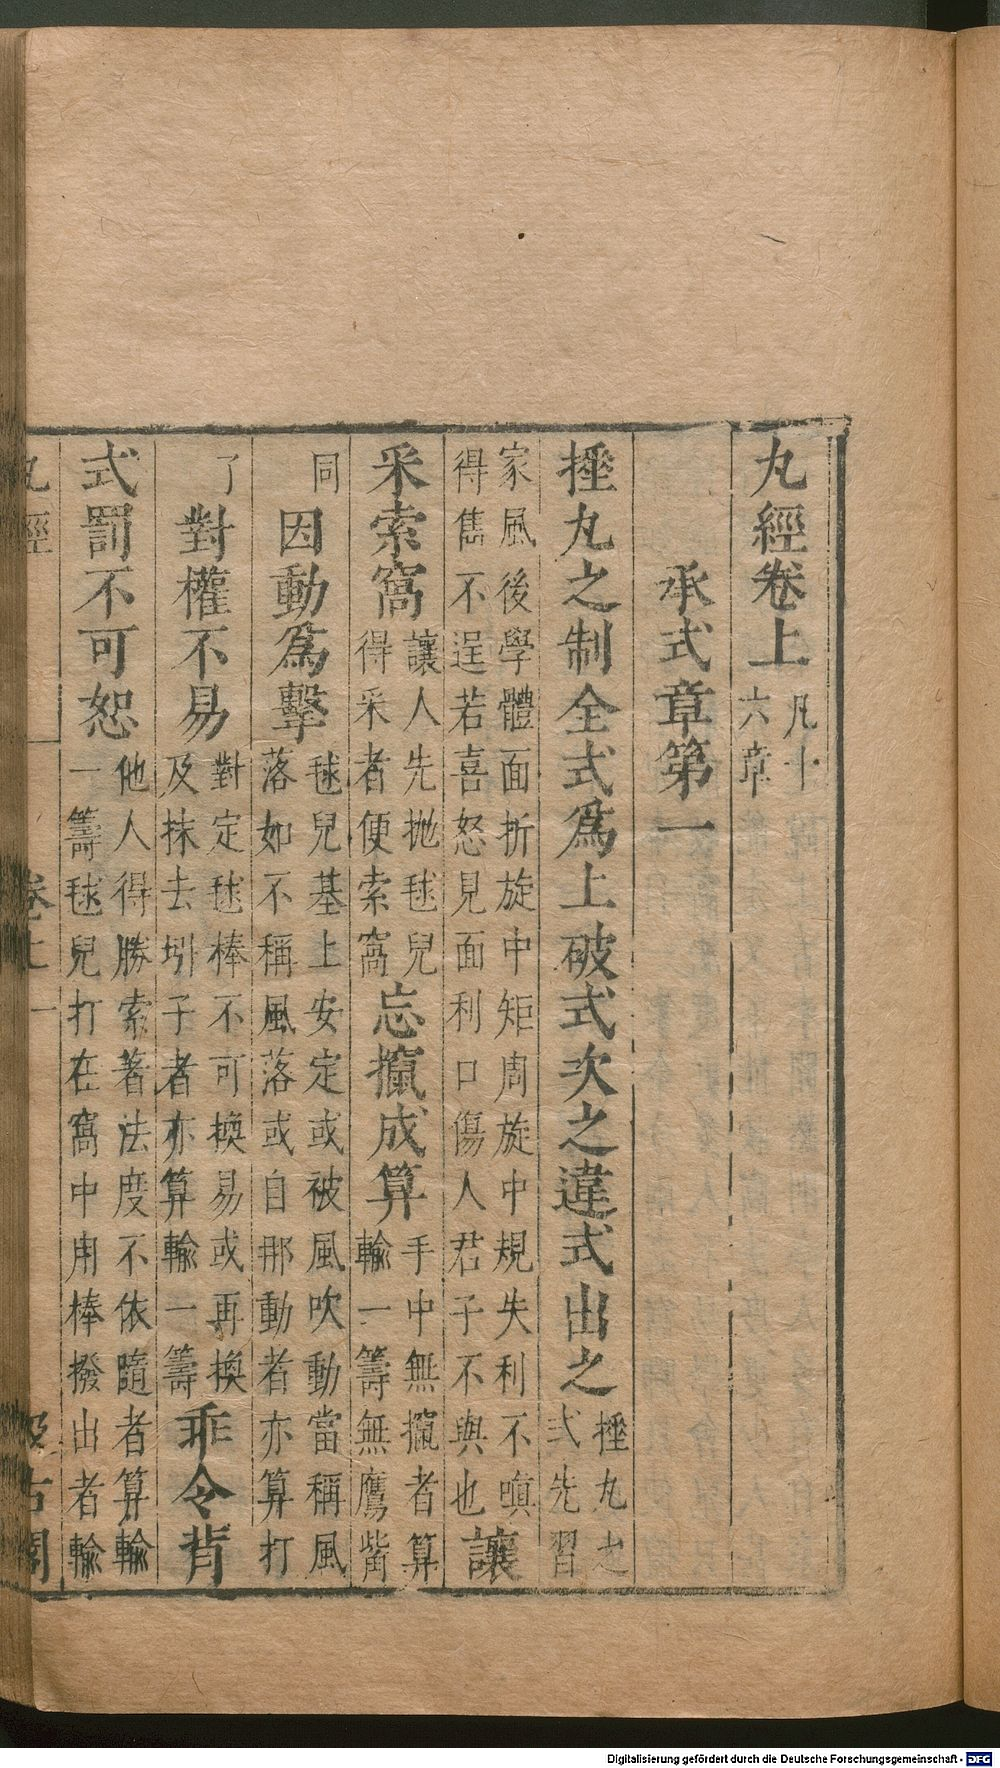 丸經卷上凡十六章
承式章第一
捶丸之制全式爲上破式次之違式出之捶丸之式先習
家風後學體面折旋中矩周旋中規失利不嗔
得雋不逞若喜怒見面利口傷人君子不與也讓
采索窩讓人先拋毬兒得采者便索窩忘攛成算手中無攛者算輸一籌無鷹觜
同因動爲擊毬兒基上安定或被風吹動當稱風落如不稱風落或自那動者亦算打
了對權不易對定毬棒不可換易或再換及抹去圳子者亦算輸一籌乖令背
式罰不可恕他人得勝索著法度不依隨者算輸一籌毬兒打在窩中用棒撥出者輸
丸經 卷上 一 汲古閣
Digitalisierung gefördert durch die Deutsche Forschungsgemeinschaft - DFG